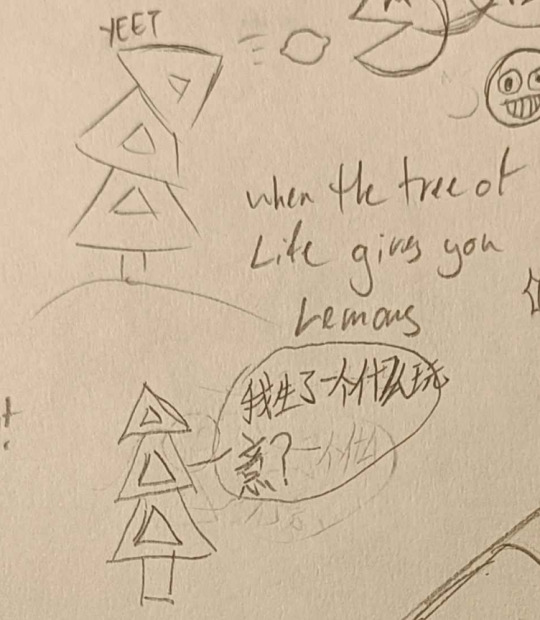 YEET
when the tree of
Life gives you
Lemons
我生了一个什么玩
意?